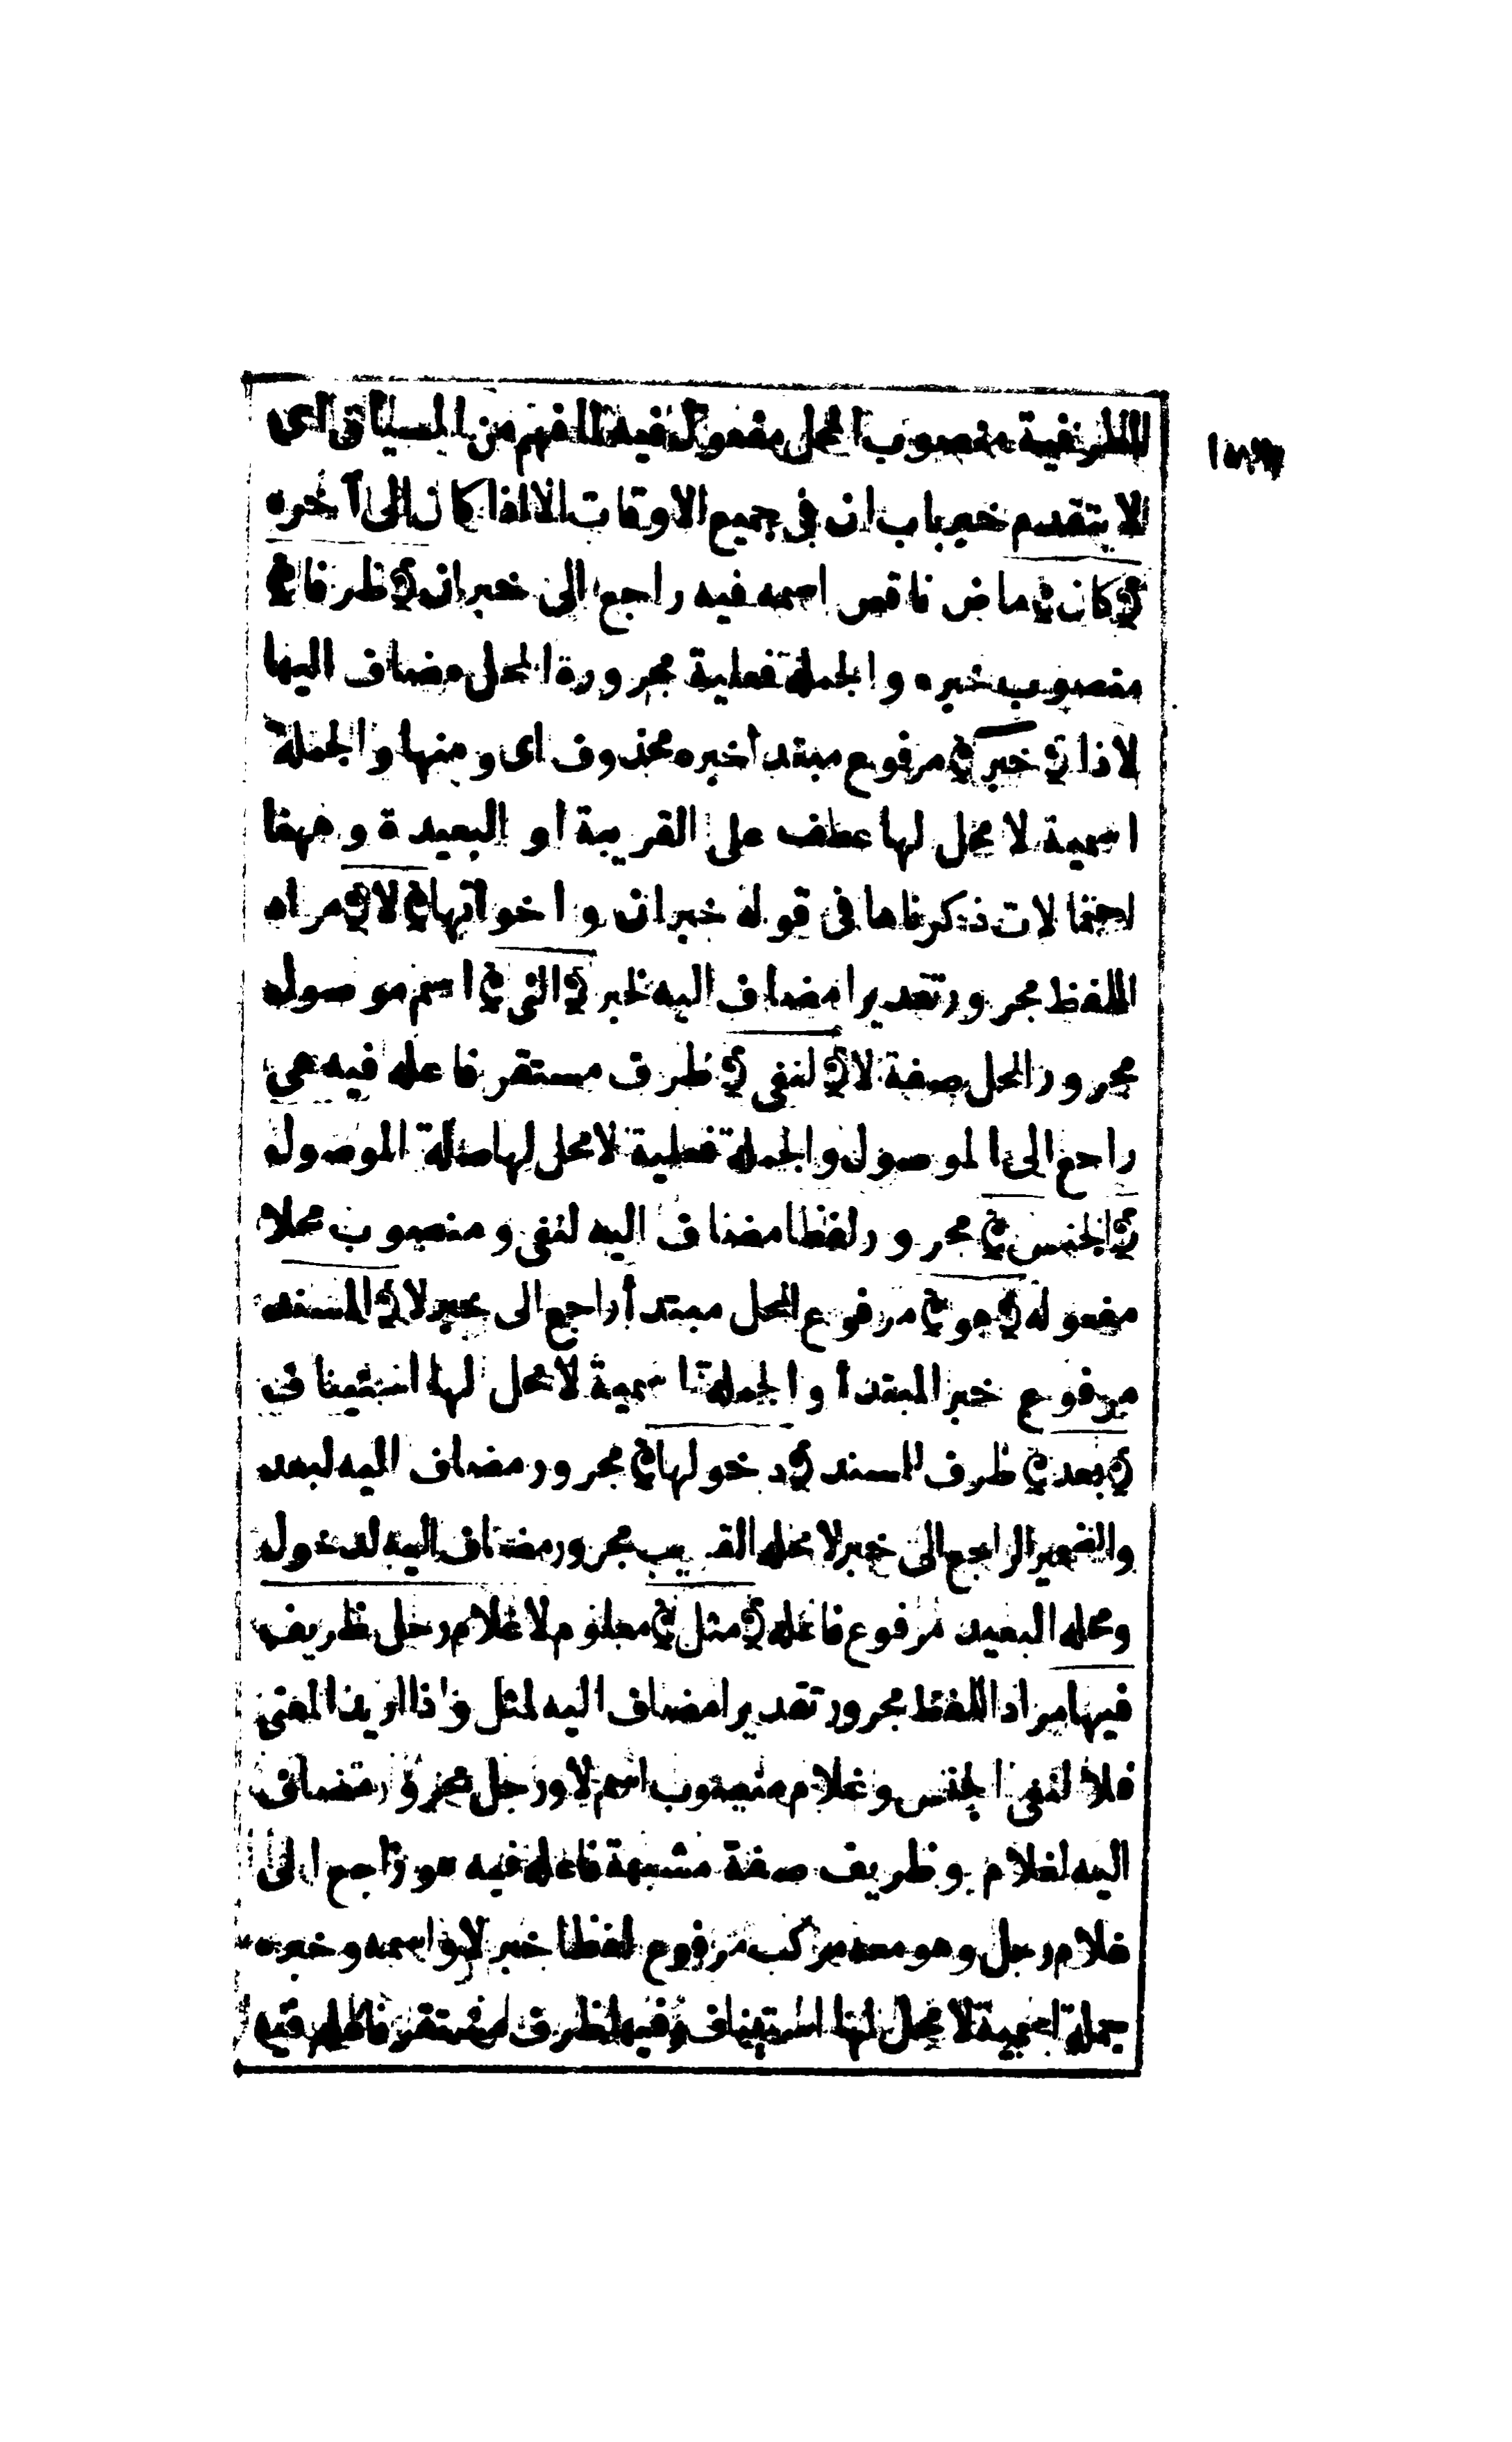 للظرفية منصوب المحل مفعول فيه لما فهم من السياق اى
لا يتقدم خبر باب ان فى جميع الاوقات الا اذا كان الى آخره
(كان) ماض ناقص اسمه فيه راجع الى خبر ان (ظرفا)
منصوب خبره والجملة فعلية مجرورة المحل مضاف اليها
لاذا (خبر) مرفوع مبتدأ خبره محذوف اى ومنها والجملة
اسمية لا محل لها عطف على القريبة او البعيدة وههنا
احتمالات ذكرناها فى قوله خبر ان واخواتها (لا) مراد
اللفظ مجرور تقديرا مضاف اليه لخبر (التى) اسم موصول
مجرور المحل صفة لا (لنفى) ظرف مستقر فاعله فيه هى
راجع الى الموصول والجملة فعلية لا محل لها صلة الموصول
(الجنس) مجرور لفظا مضاف اليه لنفى ومنصوب محلا
مفعوله (هو) مرفوع المحل مبتدأ راجع الى خبر لا (المسند
مرفوع خبر المبتدأ والجملة اسمية لا محل لها استيناف
(بعد) ظرف المسند (دخولها) مجرور مضاف اليه لبعد
والضمير الراجع الى خبر لا محله القريب مجرور مضاف اليه لدخول
ومحله البعيد مرفوع فاعله (مثل) معلوم لا غلام رجل ظريف
فيها مراد اللفظ مجرور تقديرا مضاف اليه لمثل واذا اريد المعنى
فلا لنفى الجنس وغلام منصوب اسم لا ورجل مجرور مضاف
اليه لغلام وظريف صفة مشبهة فاعله فيه هو راجع الى
غلام رجل وهو معه مركب مرفوع لفظا خبر لا واسمه وخبره
جملة اسمية لا محل لها استيناف وفيها ظرف مستقر فاعله فيه